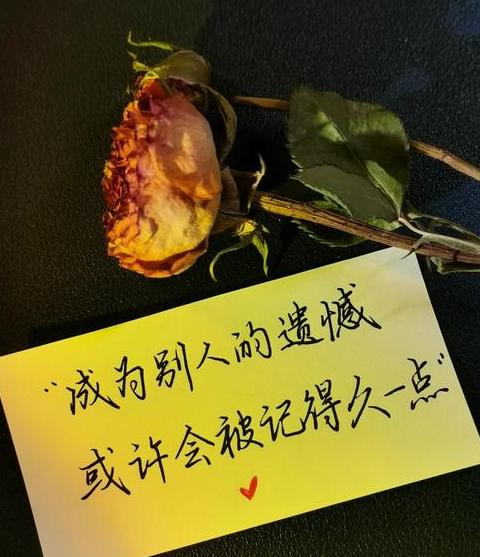 “成为别人的遗憾
或许会被记得久一点”